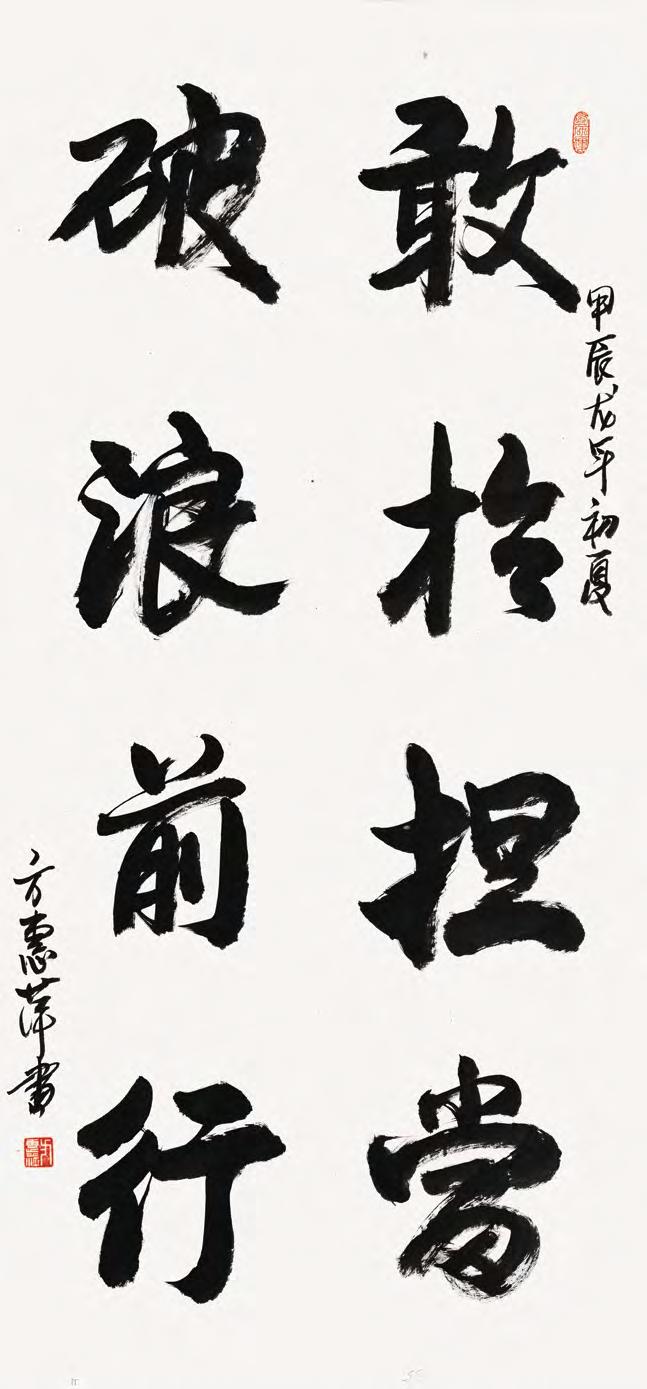 甲辰龙年初夏
敢於担當
破浪前行
方惠萍書